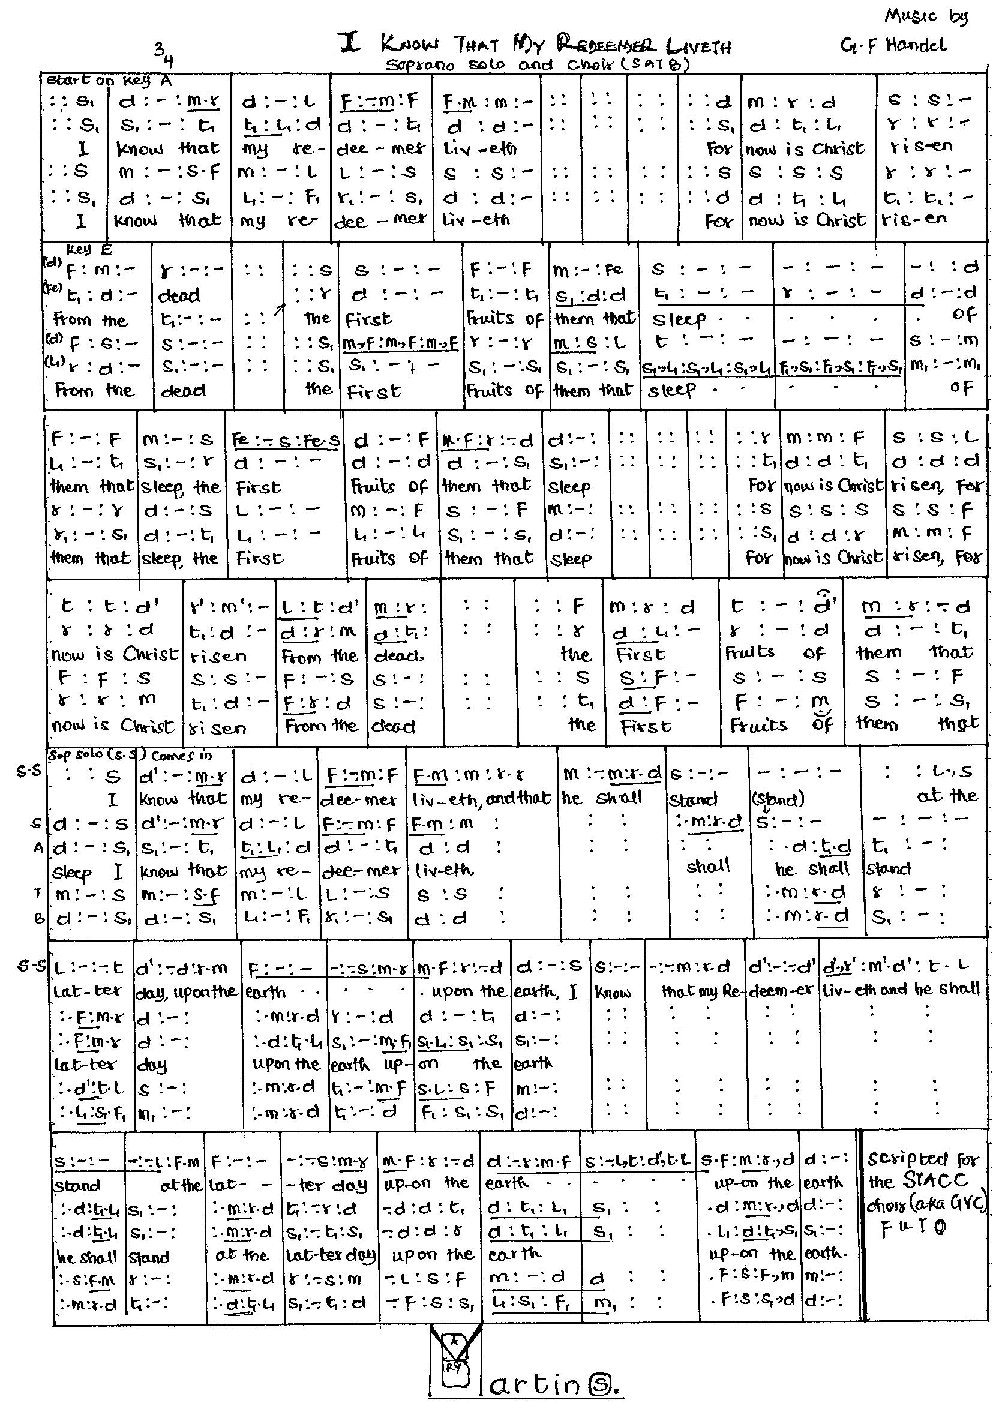 Music by
3/4
I KNOW THAT MY REDEEMER LIVETH
G.F Handel
Soprano solo and Choir (SATB)
Start on Key A
: : S₁ | d : - : m.r | d : - : L | F : - m : F | F.M : m : - | : : | : : | : : | : : d | m : r : d | s : s : -
: : S₁ | S₁ : - : t₁ | t₁ : L₁ : d | d : - : t₁ | d : d : - | : : | : : | : : | : : S₁ | d : t₁ : L₁ | r : r : -
I know that my re- dee-mer liv-eth For now is Christ ris-en
: : S | m : - : S.F | m : - : L | L : - : S | S : S : - | : : | : : | : : | : : S | S : S : S | r : r : -
: : S₁ | d : - : S₁ | L₁ : - : F₁ | r₁ : - : S₁ | d : d : - | : : | : : | : : | : : d | d : t₁ : L₁ | t₁ : t₁ : -
I know that my re- dee-mer liv-eth For now is Christ ris-en
Key E
(d) F : m : - | r : - : - | : : | : : S | S : - : - | F : - : F | m : - : Fe | S : - : - | - : - : - | - : : d
(Fe) t₁ : d : - | dead | : : | : : r | d : - : - | t₁ : - : t₁ | S₁ : d : d | t₁ : - : - | r : - : - | d : - : d
From the t₁ : - : - : : the first fruits of them that sleep of
(d) F : S : - | S : - : - | : : | : : S₁ | m.,F : m.,F : m.,F | r : - : r | m : S : L | t : - : - | - : - : - | S : - : m
(L₁) r : d : - | S₁ : - : - | : : | : : S₁ | S₁ : - : - | S₁ : - : S₁ | S₁ : - : S₁ | S₁.,L₁ : S₁.,L₁ : S₁.,L₁ | F₁.,S₁ : F₁.,S₁ : F₁.,S₁ | m₁ : - : m₁
From the dead the First fruits of them that sleep of
F : - : F | m : - : S | Fe : - S : Fe.S | d : - : F | m.F : r : - d | d : - : | : : | : : | : : | : : r | m : m : F | S : S : L
L₁ : - : t₁ | S₁ : - : r | d : - : - | d : - : d | d : - : S₁ | S₁ : - : | : : | : : | : : | : : t₁ | d : d : t₁ | d : d : d
them that sleep, the First fruits of them that sleep For now is Christ risen, For
r : - : r | d : - : S | L : - : - | m : - : F | S : - : F | m : - : | : : | : : | : : | : : S | S : S : S | S : S : F
r₁ : - : S₁ | d : - : t₁ | L₁ : - : - | L₁ : - : L₁ | S₁ : - : S₁ | d : - : | : : | : : | : : | : : S₁ | d : d : r | m : m : F
them that sleep, the First fruits of them that sleep For now is Christ risen, For
t : t : d' | r' : m' : - | L : t : d' | m : r : | : : | : : F | m : r : d | t : - : d' | m : r : - d
r : r : d | t₁ : d : - | d : r : m | d : t₁ : | : : | : : r | d : L₁ : - | r : - : d | d : - : t₁
now is Christ risen From the dead, the First fruits of them that
F : F : S | S : S : - | F : - : S | S : - : | : : | : : S | S : F : - | S : - : S | S : - : F
r : r : m | t₁ : d : - | F : r : d | S : - : | : : | : : t₁ | d : F : - | F : - : m | S : - : S₁
now is Christ risen From the dead the First Fruits of them that
Sop solo (S.S) Comes in
S-S : : S | d' : - : m.r | d : - : L | F : - m : F | F.m : m : r.r | m : - m : r.d | S : - : - | - : - : - | : : L.,S
I know that my re- dee-mer liv-eth, and that he shall stand (stand) at the
S d : - : S | d' : - : m.r | d : - : L | F : - m : F | F.m : m : | : : | : . m : r.d | S : - : - | - : - : -
A d : - : S₁ | S₁ : - : t₁ | t₁ : L₁ : d | d : - : t₁ | d : d : | : : | : : | : . d : t₁.d | t₁ : - :
sleep I know that my re- dee-mer liv-eth shall he shall stand
T m : - : S | m : - : S.F | m : - : L | L : - : S | S : S : | : : | : : | : . m : r.d | r : - :
B d : - : S₁ | d : - : S₁ | L₁ : - : F₁ | r₁ : - : S₁ | d : d : | : : | : : | : . m : r.d | S₁ : - :
S-S L : - : - t | d' : - d : r.m | F : - : - | - : - S : m.r | m.F : r : - d | d : - : S | S : - : - | - : - m : r.d | d' : - : - d' | d'.,r' : m'.d' : t.L
lat-ter day, upon the earth upon the earth, I know that my Re- deem-er liv-eth and he shall
: . F : m.r | d : - : | : . m : r.d | r : - : d | d : - : t₁ | d : - : | : : | : : | : : | : :
: . F : m.r | d : - : | : . d : t₁.L₁ | S₁ : - : m.F₁ | S₁.L₁ : S₁ : - S₁ | S₁ : - : | : : | : : | : : | : :
lat-ter day upon the earth up-on the earth
: . d' : t.L | S : - : | : . m : r.d | t₁ : - : m.F | S.L : S : F | m : - : | : : | : : | : : | : :
: . L₁ : S₁.F₁ | m₁ : - : | : . m : r.d | t₁ : - : d | F₁ : S₁ : S₁ | d : - : | : : | : : | : : | : :
S : - : - | - : - L : F.m | F : - : - | - : - S : m.r | m.F : r : - d | d : - r : m.F | S : - L.t : d'.t.L | S.F : m : r.,d | d : - :
stand at the lat- -ter day up-on the earth up-on the earth
: . d : t₁.L₁ | S₁ : - : | : . m : r.d | t₁ : - r : d | - d : d : t₁ | d : t₁ : L₁ | S₁ : : | . d : m : r.,d | d : - :
: . d : t₁.L | S₁ : - : | : . m : r.d | S₁ : - t₁ : S₁ | - d : d : r | d : t₁ : L₁ | S₁ : : | . L₁ : d : t₁.,S₁ | S₁ : - :
he shall stand at the lat-ter day upon the earth up-on the earth.
: . S : F.m | r : - : | : . m : r.d | r : - S : m | - L : S : F | m : - : d | d : : | . F : S : F.,m | m : - :
: . m : r.d | t₁ : - : | : . d : t₁.L₁ | S₁ : - t₁ : d | - F : S : S₁ | L₁ : S₁ : F₁ | m₁ : : | . F : S : S₁.,d | d : - :
scripted for
the STACC
choir (aka GVC)
FUTO
artin S.